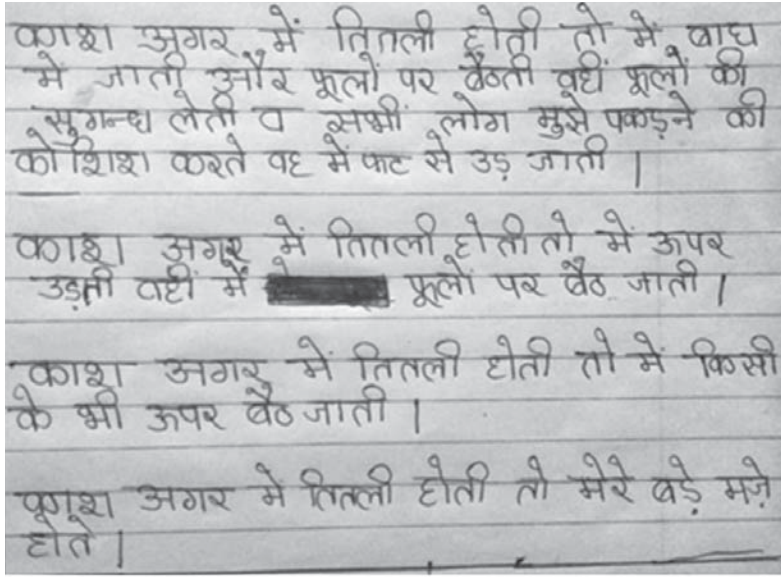 काश अगर में तितली होती तो में बाघ
में जाती और फूलों पर बैठती वहीं फूलों की
सुगन्ध लेती व सभीं लोग मुझे पकड़ने की
कोशिश करते वह में फट से उड़ जाती ।
काश अगर में तितली होती तो में ऊपर
उड़ती वहीं में फूलों पर बैठ जाती ।
काश अगर में तितली होती तो में किसी
के भी ऊपर बैठ जाती ।
काश अगर में तितली होती तो मेरे बड़े मज़े
होते ।